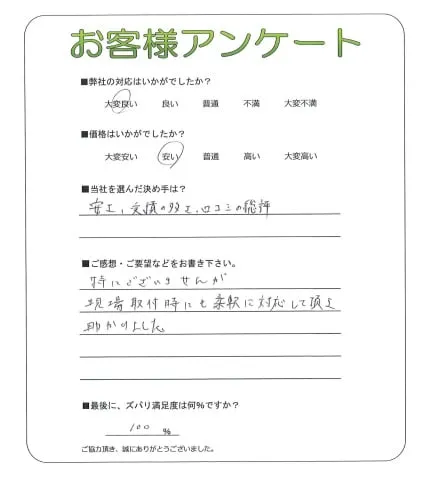 お客様アンケート
■弊社の対応はいかがでしたか？
大変良い 良い 普通 不満 大変不満
■価格はいかがでしたか？
大変安い 安い 普通 高い 大変高い
■当社を選んだ決め手は？
安さ、実績の多さ、口コミの総評
■ご感想・ご要望などをお書き下さい。
特にございませんが
現場取付時にも柔軟に対応して頂き
助かりました。
■最後に、ズバリ満足度は何％ですか？
100 ％
ご協力頂き、誠にありがとうございました。